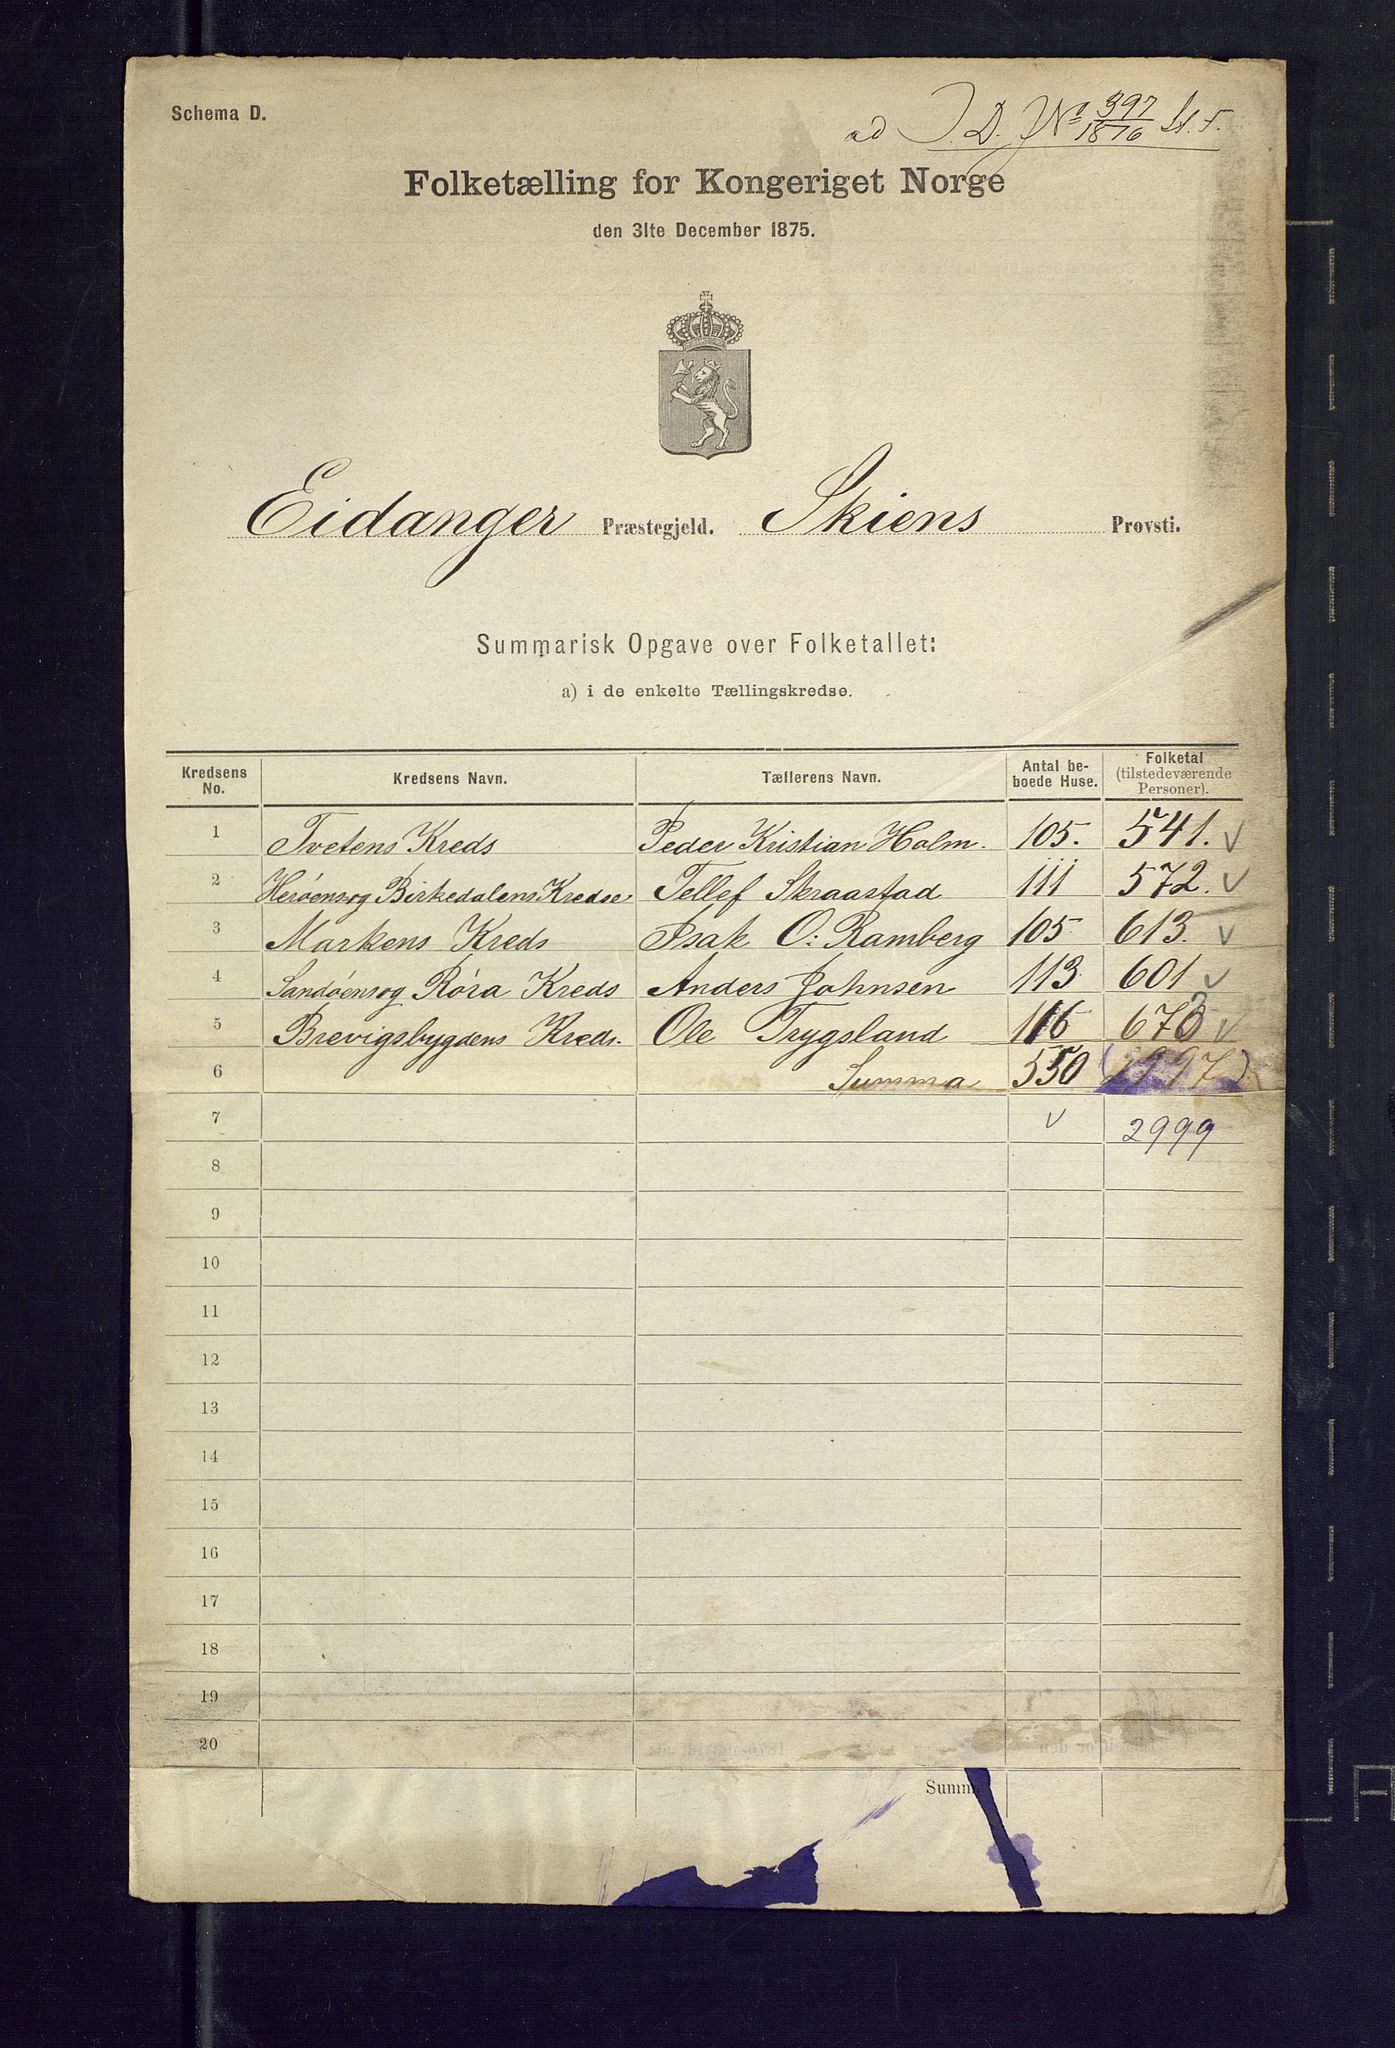 Schema D.
ad J. D. № 397/1876 St. F.
Folketælling for Kongeriget Norge
den 31te December 1875.
Eidanger Præstegjeld. Skiens Provsti.
Summarisk Opgave over Folketallet:
a) i de enkelte Tællingskredse.
Kredsens No. Kredsens Navn. Tællerens Navn. Antal beboede Huse. Folketal (tilstedeværende Personer).
1 Tvetens Kreds Peder Kristian Holm. 105. 541. ✓
2 Herøens og Birkedalens Kredse Tellef Skraastad 111 572. ✓
3 Markens Kreds Isak O: Ramberg 105 613. ✓
4 Sandøens og Røra Kreds Anders Johnsen 113 601 ✓
5 Brevigsbygdens Kreds. Ole Trygsland 116 673 ✓
6 Summa 550 (2997)
7 ✓ 2999
8
9
10
11
12
13
14
15
16
17
18
19
20
Summ